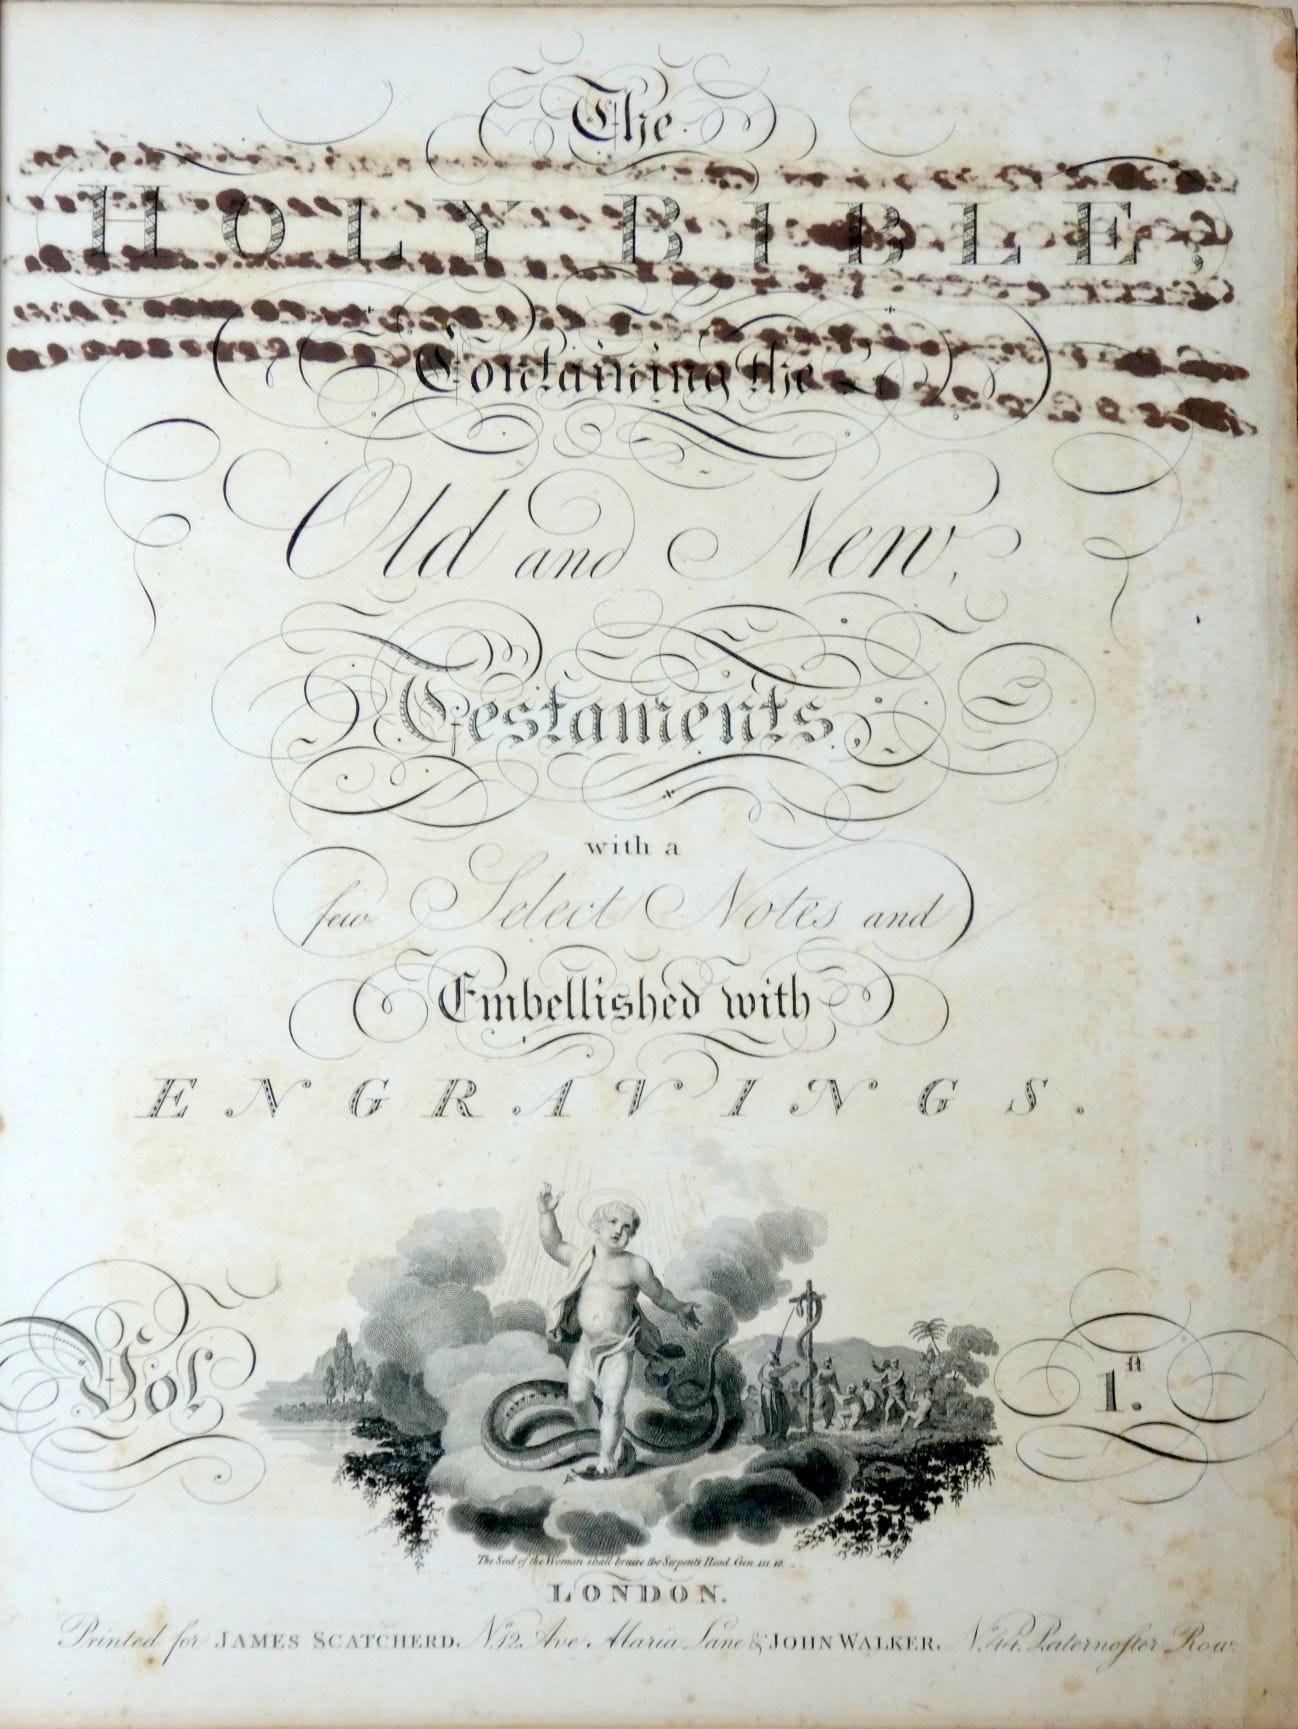 The
HOLY BIBLE,
Containing the
Old and New,
Testaments,
with a
few Select Notes and
Embellished with
ENGRAVINGS.
Vol 1.st
The Seed of the Woman shall bruise the Serpents Head. Gen. III.
LONDON.
Printed for JAMES SCATCHERD, No. 12, Ave Maria Lane & JOHN WALKER, No. 44, Paternoster Row.